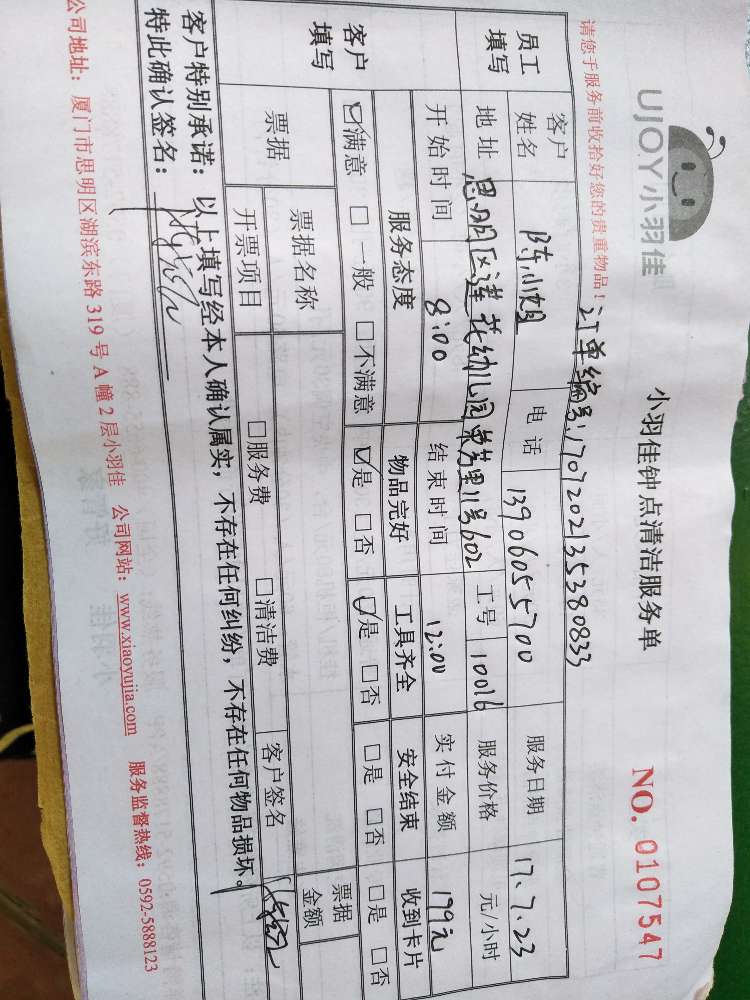 UJOY小羽佳
小羽佳钟点清洁服务单
NO. 0107547
请您于服务前收拾好您的贵重物品！
订单编号:170720213538 0833
员工填写 客户姓名 陈小姐 电话 13906055700 服务日期 17.7.23
地址 思明区莲花幼儿园 11号602 工号 10016 服务价格 元/小时
开始时间 8:00 结束时间 12:00 实付金额 179元
客户填写 服务态度 物品完好 工具齐全 安全结束 收到卡片
☑满意 □一般 □不满意 ☑是 □否 ☑是 □否 □是 □否 □是 □否
票据 票据名称 票据金额
开票项目 □服务费 □清洁费 客户签名
客户特别承诺：以上填写经本人确认属实，不存在任何纠纷，不存在任何物品损坏。
特此确认签名：
公司地址：厦门市思明区湖滨东路 319 号 A 幢 2 层小羽佳 公司网站：www.xiaoyujia.com 服务监督热线：0592-5888123